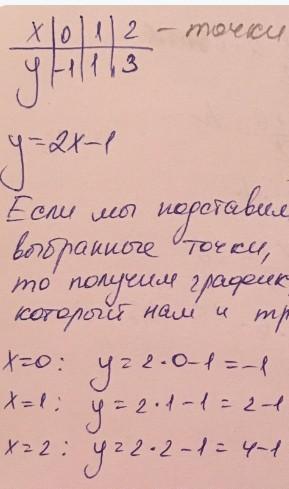 x | 0 | 1 | 2 - точки
y | -1 | 1 | 3
y=2x-1
Если мы подставим
выбранные точки,
то получим график,
который нам и тр
x=0: y=2·0-1=-1
x=1: y=2·1-1=2-1
x=2: y=2·2-1=4-1